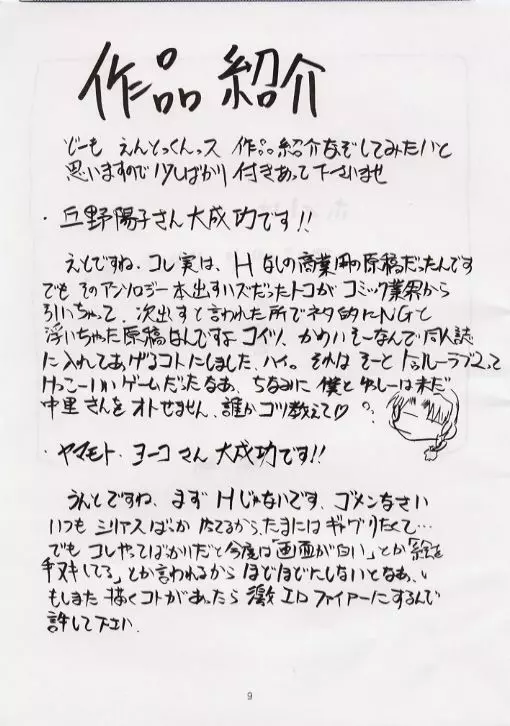 作品紹介
どーも えんとっくんっス 作品紹介なぞしてみたいと
思いますので 少しばかり 付きあって下さいませ
・丘野陽子さん大成功です!!
えとですね、コレ実は、Hなしの商業用の原稿だったんです
でも そのアンソロジー本出すハズだったトコが コミック業界から
引いちゃって、次出すと言われた所でネタ的にNGと
浮いちゃった原稿なんですよコイツ、かわいそーなんで同人誌
に入れてあげるコトにしました、ハイ。それは そーと トゥルーラブ2って
けっこーいいゲームだったなぁ、ちなみに 僕と は未だ
中里さんをオトせません、誰かコツ教えて♡
・ヤマモト・ヨーコさん 大成功です!!
うんとですね、まず Hじゃないです、ゴメンなさい
いつも シリアスばっか たてるから、たまには ギャグりたくて…
でも コレやってばかりだと今度は「画面が白い」とか「絵を
手ヌキしてる」とか言われるから ほどほどにしないとなぁ、
もしまた 描くコトがあったら 激エロファイアーにするんで
許して下さい.
9